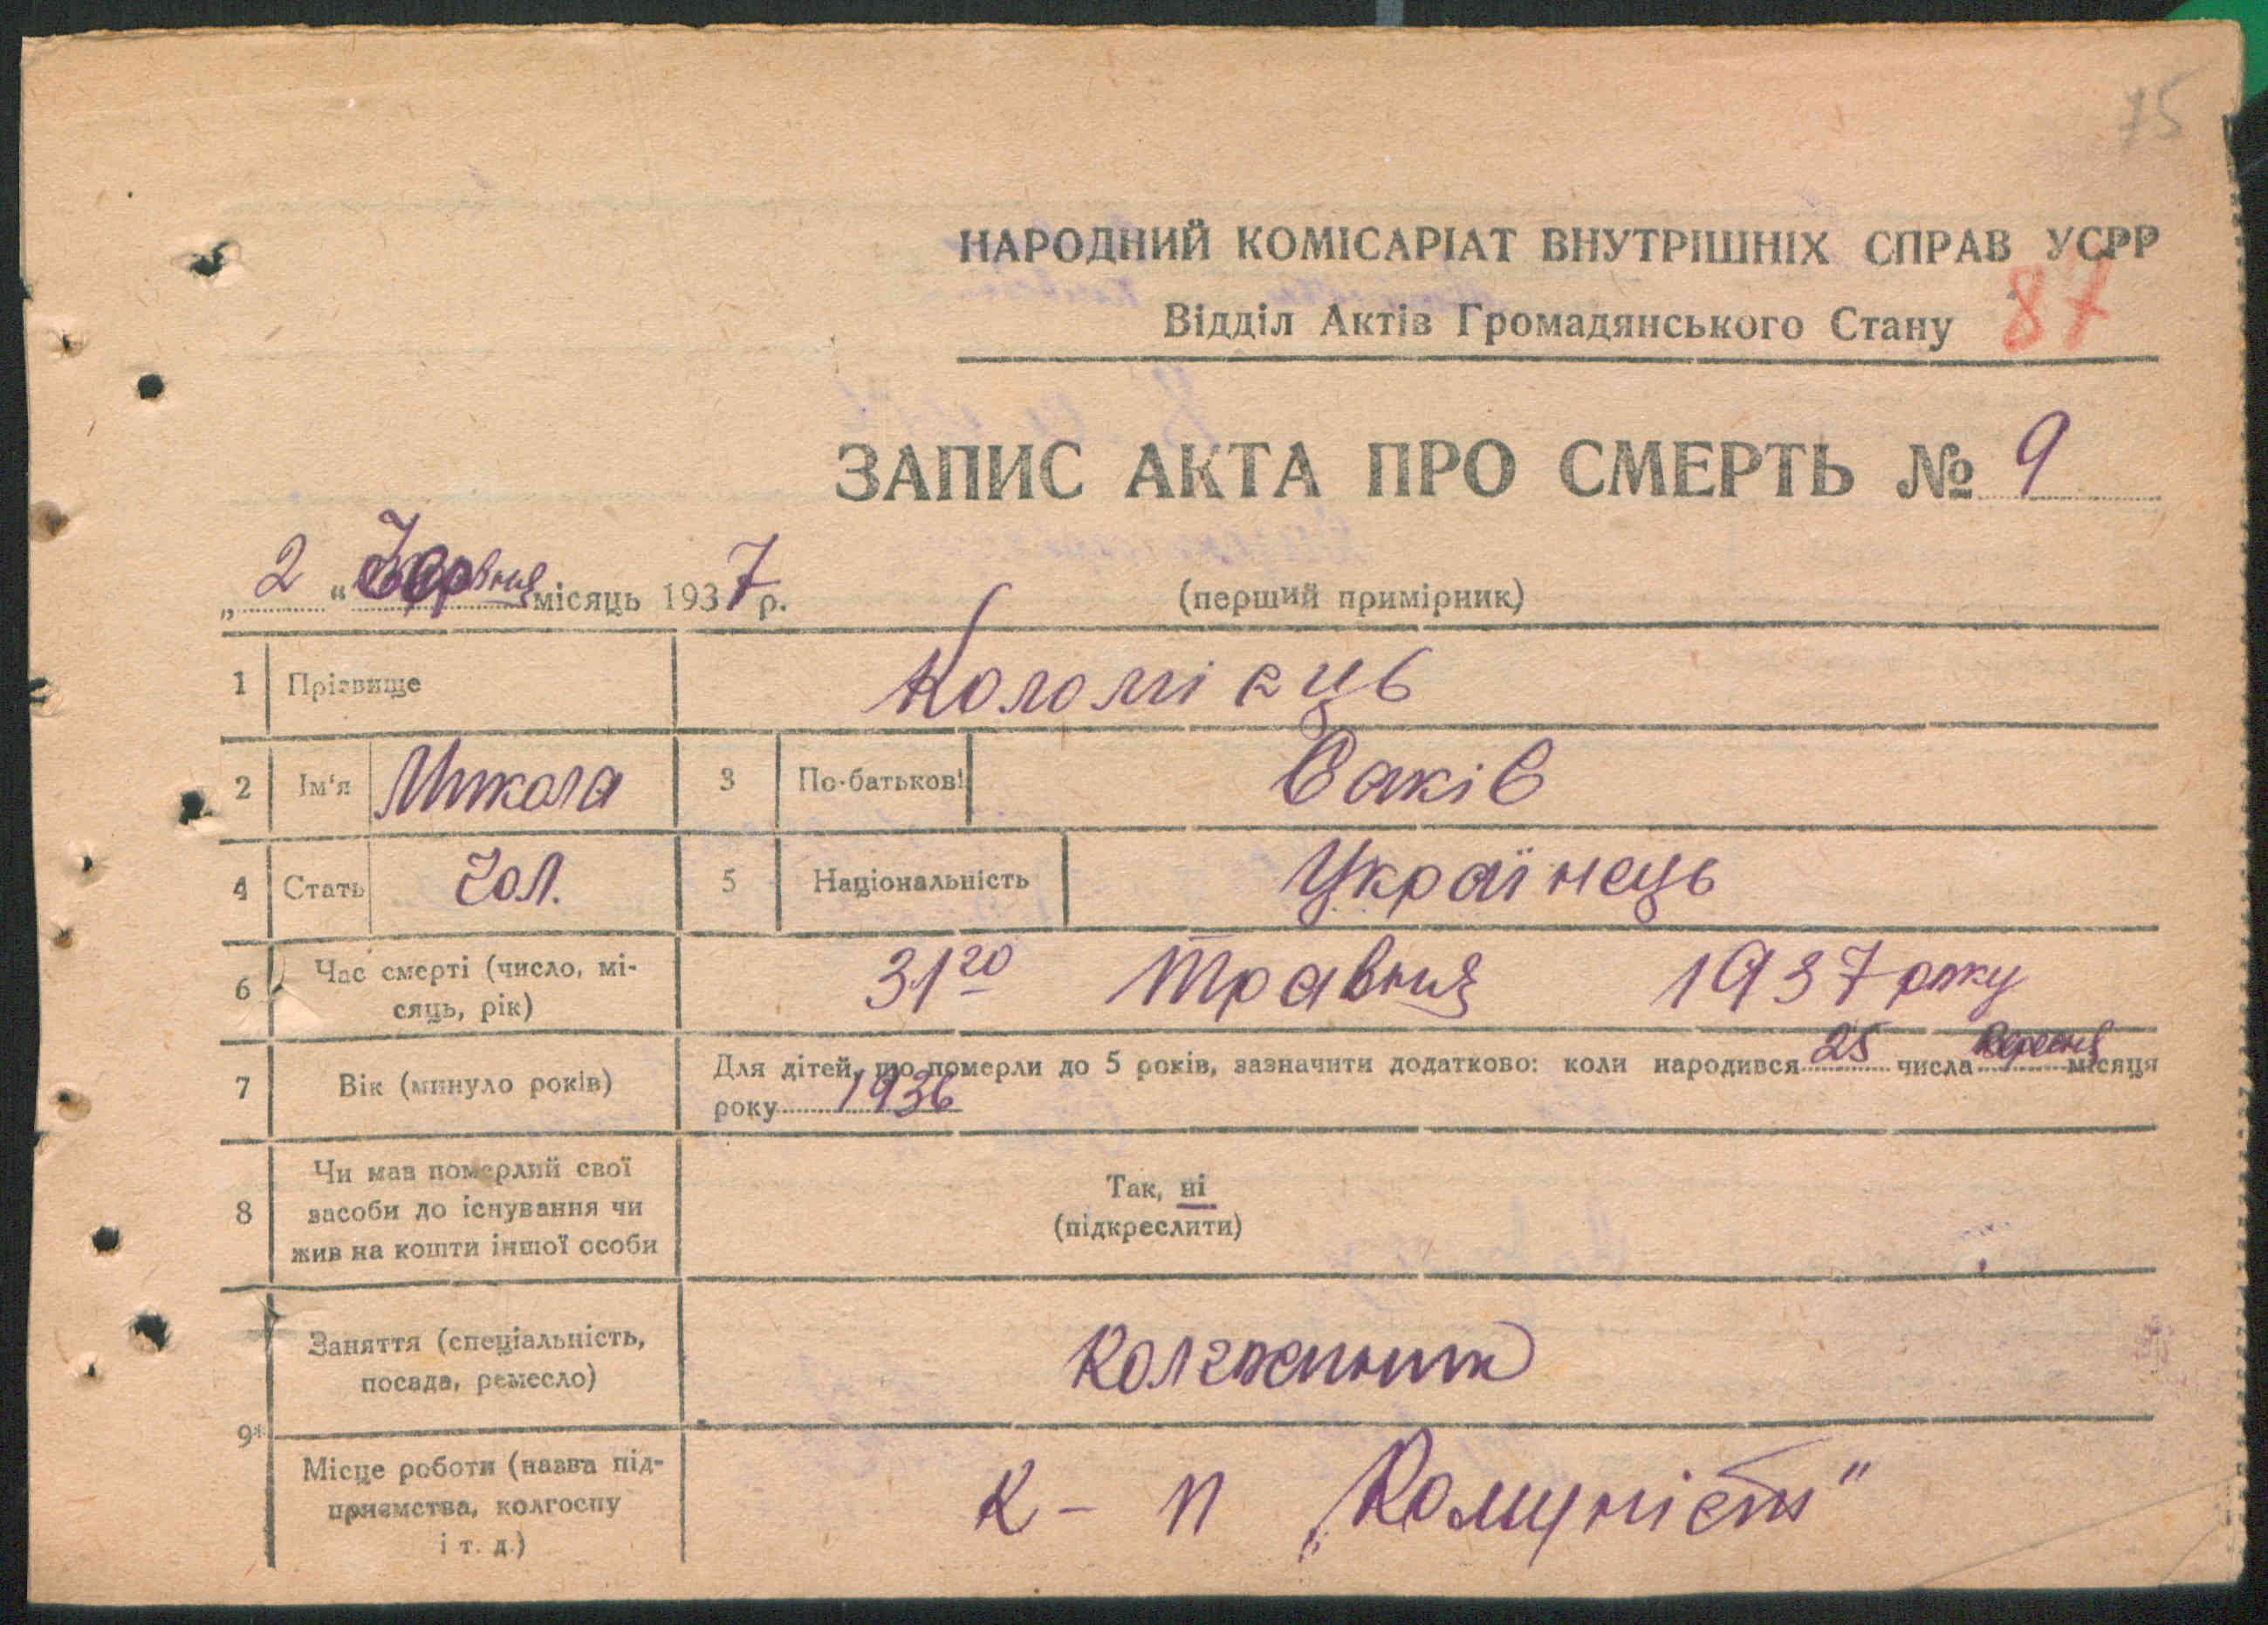 75
НАРОДНИЙ КОМІСАРІАТ ВНУТРІШНІХ СПРАВ УСРР
87
Відділ Актів Громадянського Стану
ЗАПИС АКТА ПРО СМЕРТЬ № 9
„2“ Червня місяць 1937 р.
(перший примірник)
1 Прізвище Коломієць
2 Ім'я Микола 3 По-батькові Яків
4 Стать Чол. 5 Національність Українець
6 Час смерті (число, мі-
сяць, рік)
31го Травня 1937 року
7 Вік (минуло років)
Для дітей, що померли до 5 років, зазначити додатково: коли народився 25 числа Вересня місяця
року 1936
8 Чи мав померлий свої
засоби до існування чи
жив на кошти іншої особи
Так, ні
(підкреслити)
9* Заняття (спеціальність,
посада, ремесло)
Колгоспник
Місце роботи (назва під-
приємства, колгоспу
і т. д.)
к - п „Комуніст"